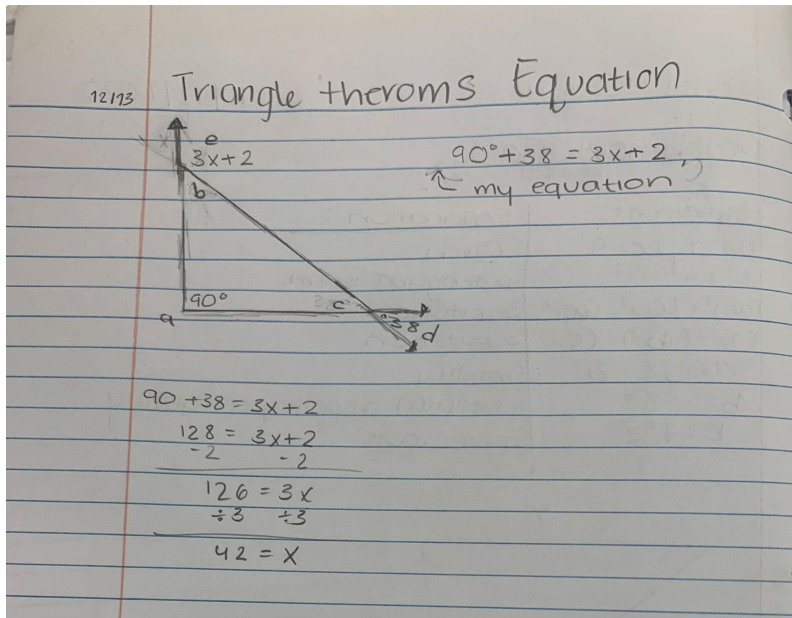 12/13 Triangle theroms Equation
e
3x+2
90°+38 = 3x+2,
my equation
b
90°
c
38
a
d
90 +38 = 3x+2
128 = 3x+2
-2 -2
126 = 3x
÷3 ÷3
42 = x